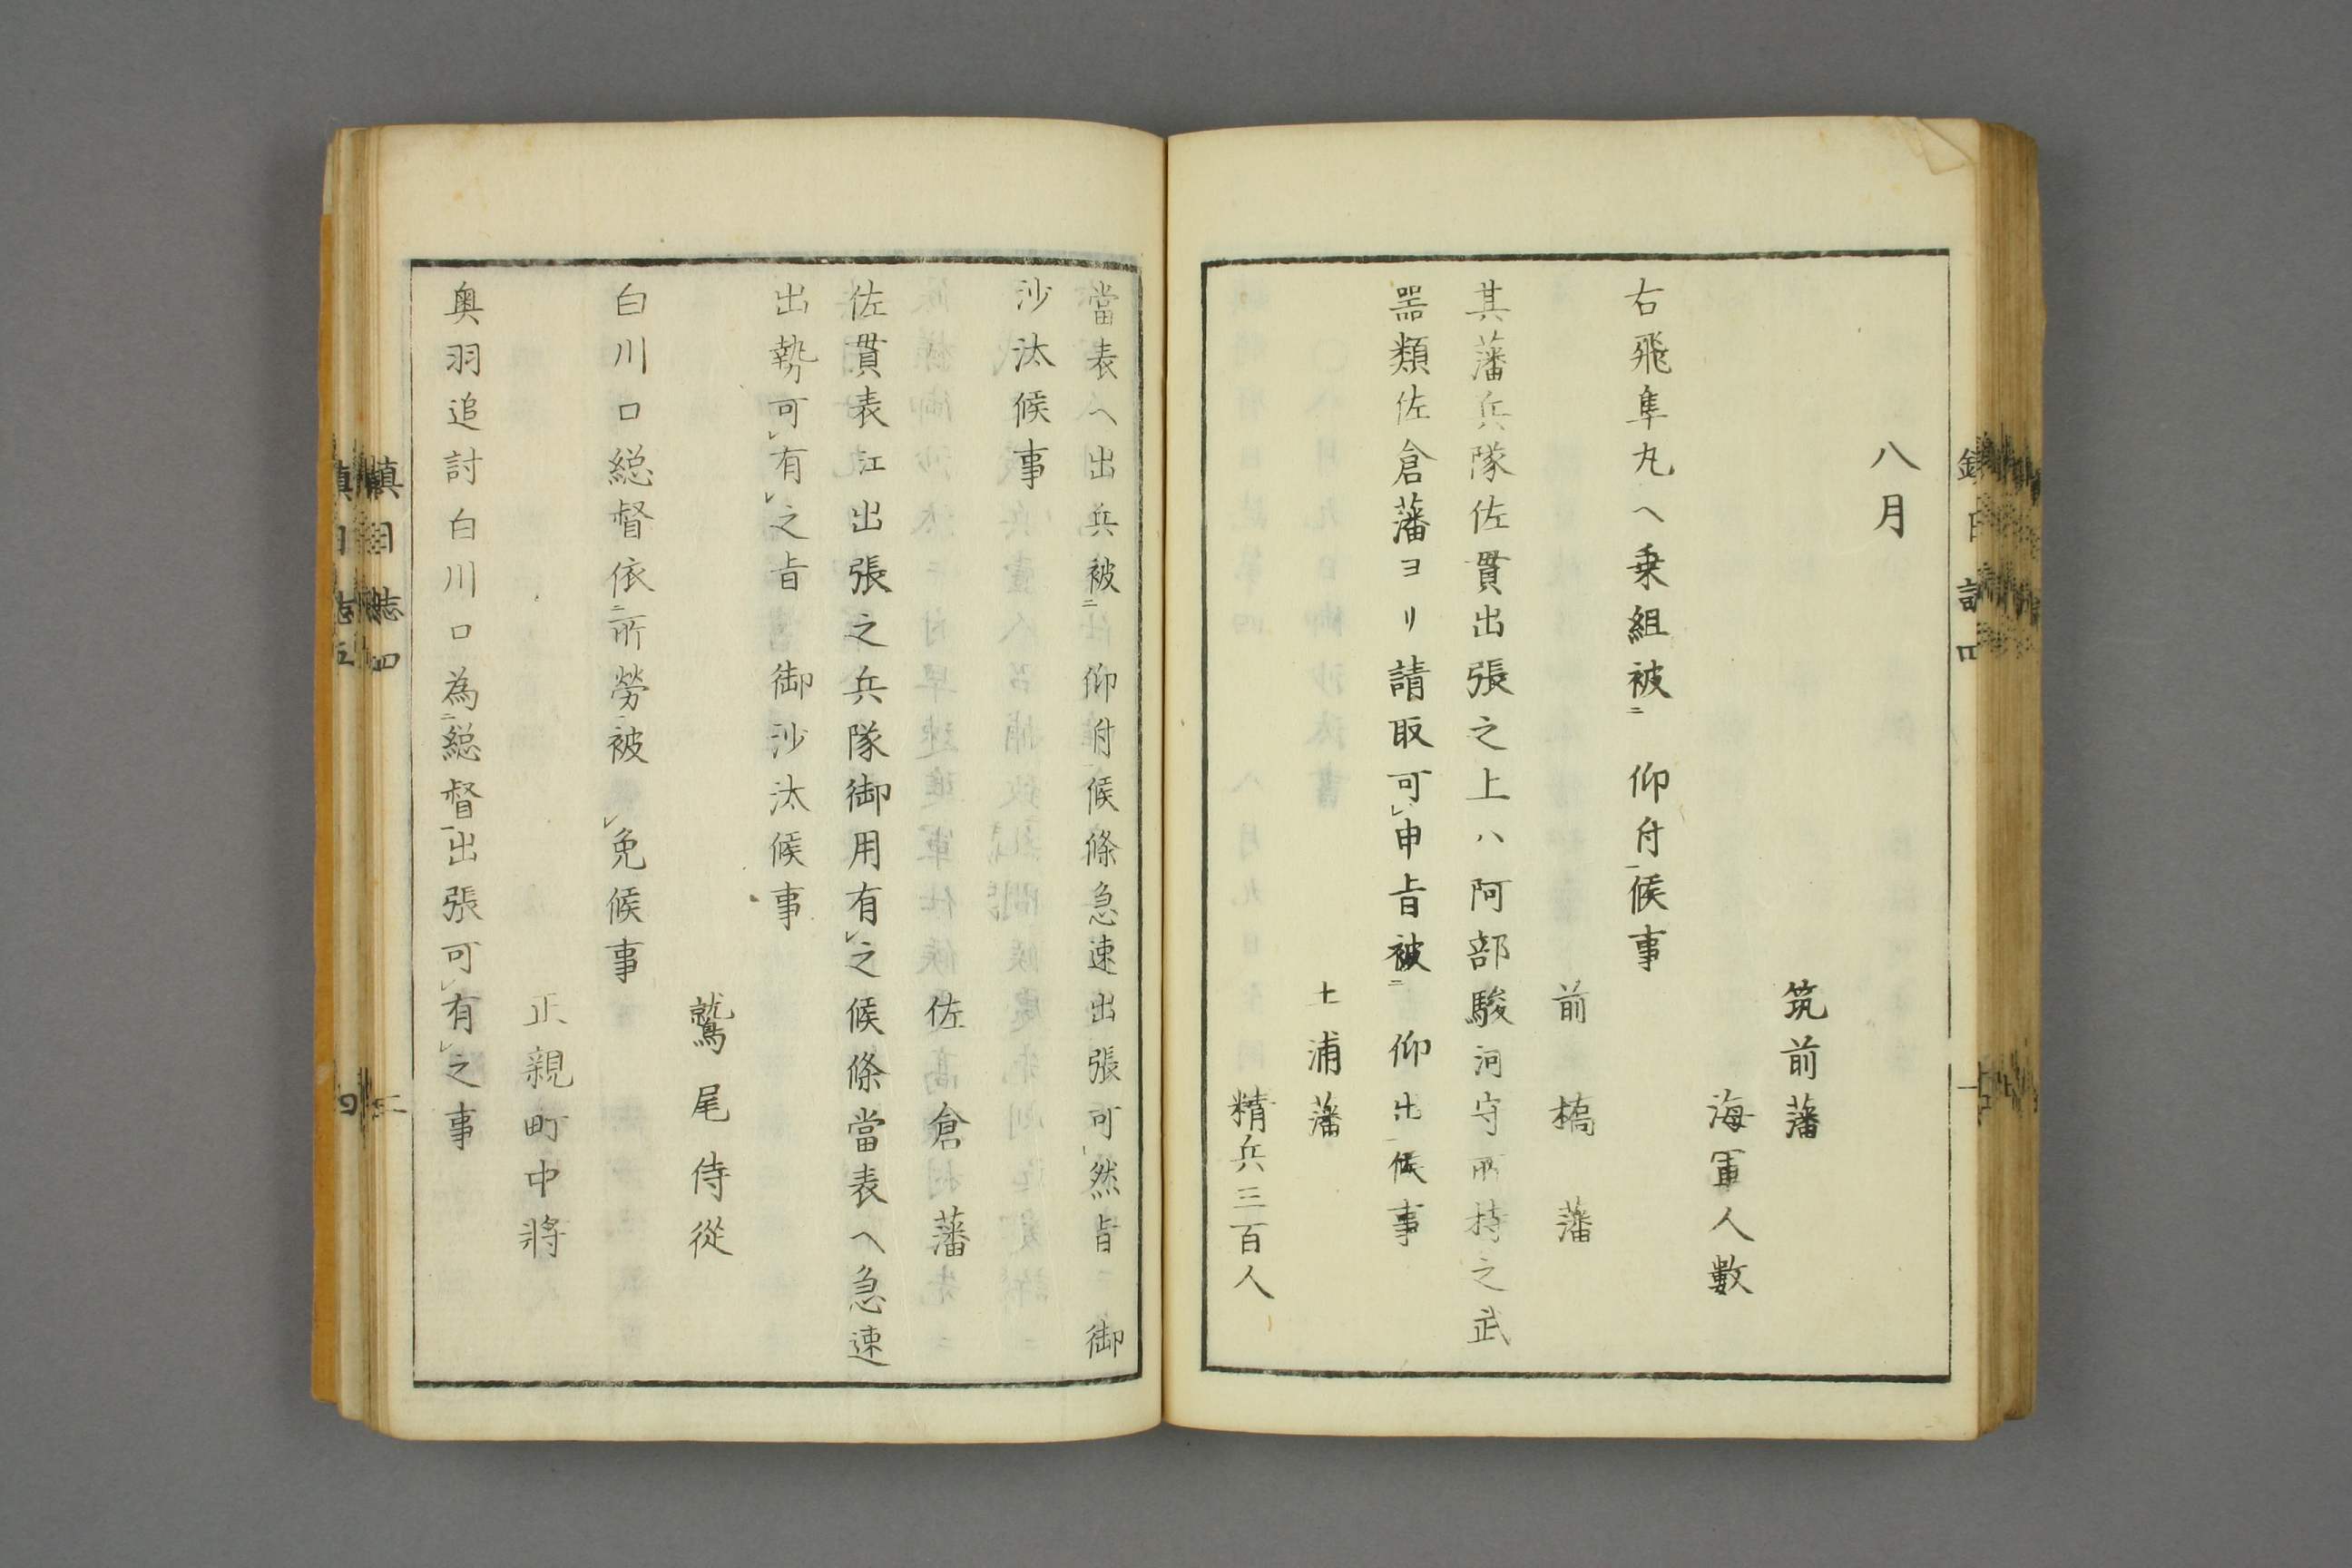 八月
筑前藩
海軍人數
右飛隼丸ヘ乗組被ニ 仰付一候事
前橋藩
其藩兵隊佐貫出張之上ハ阿部駿河守所持之武
噐類佐倉藩ヨリ請取可レ申旨被ニ 仰出一候事
土浦藩
精兵三百人
當表ヘ出兵被ニ 仰付候條急速出張可レ然旨ニ御
沙汰候事
佐倉藩
佐貫表江出張之兵隊御用有レ之候條當表ヘ急速
出勢可レ有レ之旨 御沙汰候事
鷲尾侍從
白川口総督依ニ所勞被レ免候事
正親町中將
奥羽追討白川口為ニ総督一出張可レ有レ之事
鎮日誌四
二